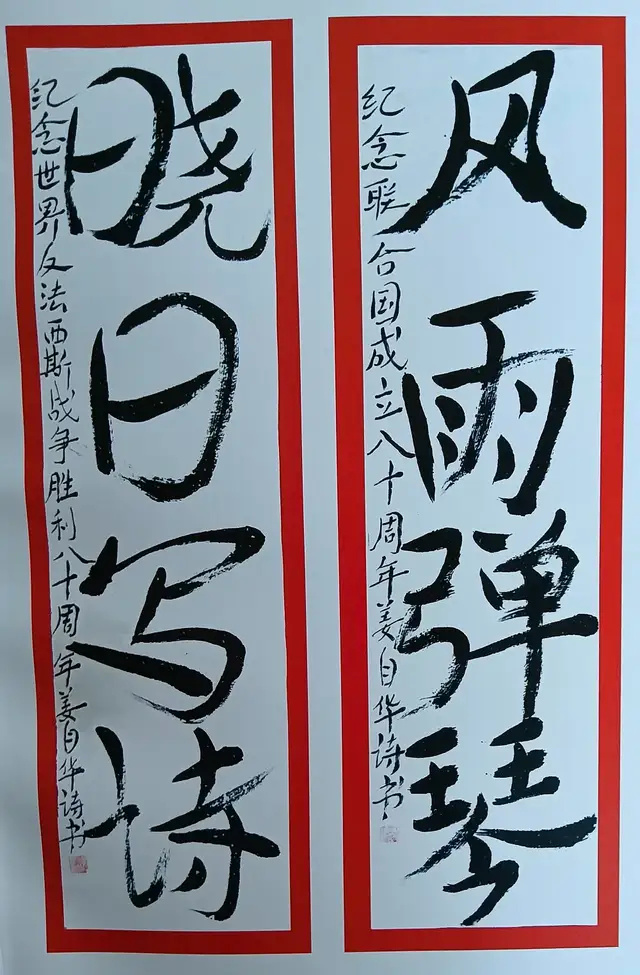 风雨弹琴
纪念联合国成立八十周年姜自华诗书
晓日写诗
纪念世界反法西斯战争胜利八十周年姜自华诗书